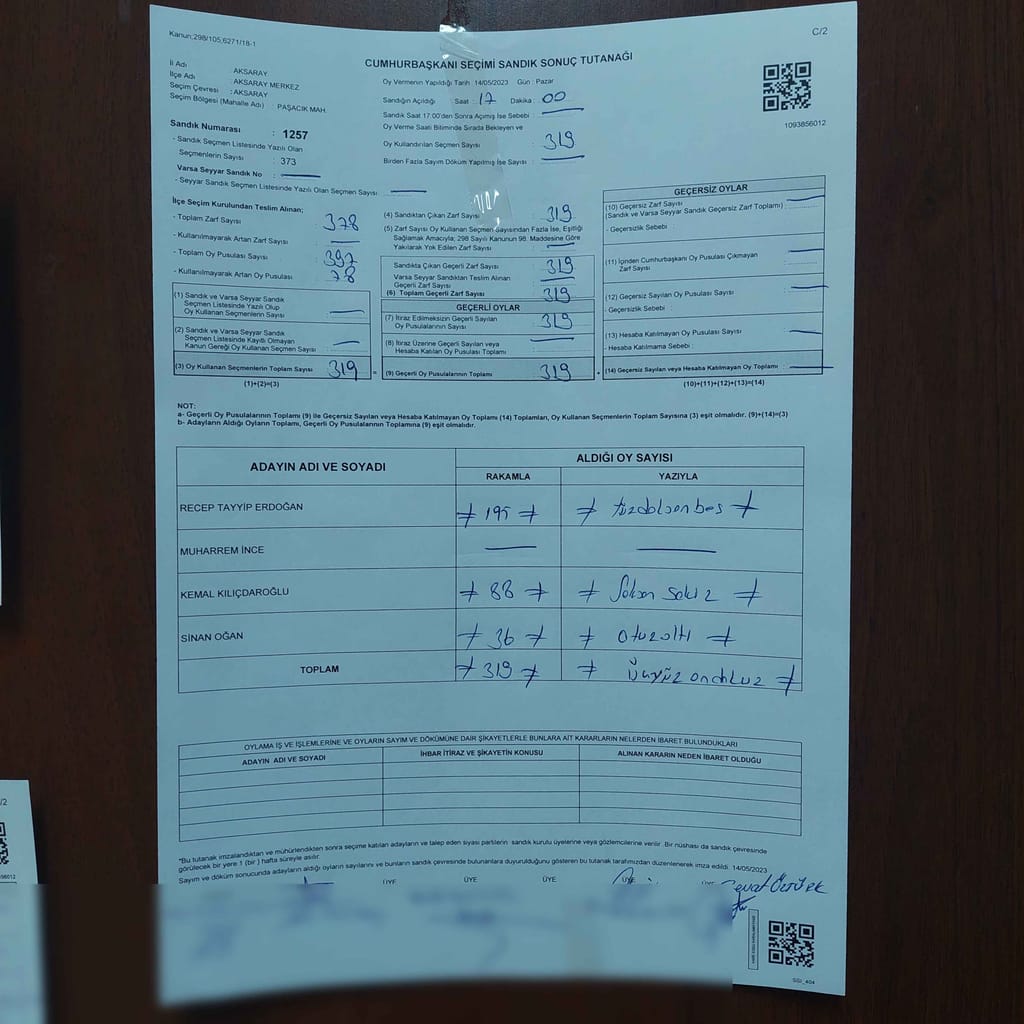 Kanun;298/105;6271/18-1
C/2
CUMHURBAŞKANI SEÇİMİ SANDIK SONUÇ TUTANAĞI
İl Adı : AKSARAY
İlçe Adı : AKSARAY MERKEZ
Seçim Çevresi : AKSARAY
Seçim Bölgesi (Mahalle Adı) : PAŞACIK MAH.
Sandık Numarası : 1257
- Sandık Seçmen Listesinde Yazılı Olan
Seçmenlerin Sayısı : 373
Varsa Seyyar Sandık No :
- Seyyar Sandık Seçmen Listesinde Yazılı Olan Seçmen Sayısı :
Oy Vermenin Yapıldığı Tarih : 14/05/2023 Gün : Pazar
Sandığın Açıldığı Saat : 17 Dakika : 00
Sandık Saat 17:00'den Sonra Açımış İse Sebebi :
Oy Verme Saati Bitiminde Sırada Bekleyen ve
Oy Kullandırılan Seçmen Sayısı : 319
Birden Fazla Sayım Döküm Yapılmış İse Sayısı :
1093856012
İlçe Seçim Kurulundan Teslim Alınan;
- Toplam Zarf Sayısı : 378
- Kullanılmayarak Artan Zarf Sayısı :
- Toplam Oy Pusulası Sayısı : 397
- Kullanılmayarak Artan Oy Pusulası : 78
(1) Sandık ve Varsa Seyyar Sandık
Seçmen Listesinde Yazılı Olup
Oy Kullanan Seçmenlerin Sayısı :
(2) Sandık ve Varsa Seyyar Sandık
Seçmen Listesinde Kayıtlı Olmayan
Kanun Gereği Oy Kullanan Seçmen Sayısı :
(3) Oy Kullanan Seçmenlerin Toplam Sayısı : 319
(1)+(2)=(3)
(4) Sandıktan Çıkan Zarf Sayısı : 319
(5) Zarf Sayısı Oy Kullanan Seçmen Sayısından Fazla İse, Eşitliği
Sağlamak Amacıyla; 298 Sayılı Kanunun 98. Maddesine Göre
Yakılarak Yok Edilen Zarf Sayısı :
Sandıkta Çıkan Geçerli Zarf Sayısı : 319
Varsa Seyyar Sandıktan Teslim Alınan
Geçerli Zarf Sayısı :
(6) Toplam Geçerli Zarf Sayısı : 319
GEÇERLİ OYLAR
(7) İtiraz Edilmeksizin Geçerli Sayılan
Oy Pusulalarının Sayısı : 319
(8) İtiraz Üzerine Geçerli Sayılan veya
Hesaba Katılan Oy Pusulası Toplamı :
= (9) Geçerli Oy Pusulalarının Toplamı : 319 +
GEÇERSİZ OYLAR
(10) Geçersiz Zarf Sayısı :
(Sandık ve Varsa Seyyar Sandık Geçersiz Zarf Toplamı)
- Geçersizlik Sebebi :
(11) İçinden Cumhurbaşkanı Oy Pusulası Çıkmayan
Zarf Sayısı :
(12) Geçersiz Sayılan Oy Pusulası Sayısı :
- Geçersizlik Sebebi :
(13) Hesaba Katılmayan Oy Pusulası Sayısı :
- Hesaba Katılmama Sebebi :
(14) Geçersiz Sayılan veya Hesaba Katılmayan Oy Toplamı :
(10)+(11)+(12)+(13)=(14)
NOT:
a- Geçerli Oy Pusulalarının Toplamı (9) ile Geçersiz Sayılan veya Hesaba Katılmayan Oy Toplamı (14) Toplamları, Oy Kullanan Seçmenlerin Toplam Sayısına (3) eşit olmalıdır. (9)+(14)=(3)
b- Adayların Aldığı Oyların Toplamı, Geçerli Oy Pusulalarının Toplamına (9) eşit olmalıdır.
ADAYIN ADI VE SOYADI
ALDIĞI OY SAYISI
RAKAMLA
YAZIYLA
RECEP TAYYİP ERDOĞAN 195
MUHARREM İNCE
KEMAL KILIÇDAROĞLU 88 Seksen Sekiz
SİNAN OĞAN 36 otuzaltı
TOPLAM 319 Üçyüz ondokuz
OYLAMA İŞ VE İŞLEMLERİNE VE OYLARIN SAYIM VE DÖKÜMÜNE DAİR ŞİKAYETLERLE BUNLARA AİT KARARLARIN NELERDEN İBARET BULUNDUKLARI
ADAYIN ADI VE SOYADI
İHBAR İTİRAZ VE ŞİKAYETİN KONUSU
ALINAN KARARIN NEDEN İBARET OLDUĞU
*Bu tutanak imzalandıktan ve mühürlendikten sonra seçime katılan adayların ve talep eden siyasi partilerin sandık kurulu üyelerine veya gözlemcilerine verilir. Bir nüshası da sandık çevresinde
görülecek bir yere 1 (bir) hafta süreyle asılır.
Sayım ve döküm sonucunda adayların aldığı oyların sayılarını ve bunların sandık çevresinde bulunanlara duyurulduğunu gösteren bu tutanak tarafımızdan düzenlenerek imza edildi. 14/05/2023
ÜYE ÜYE ÜYE ÜYE ÜYE
ÖZTÜRK
SSI_404
/2